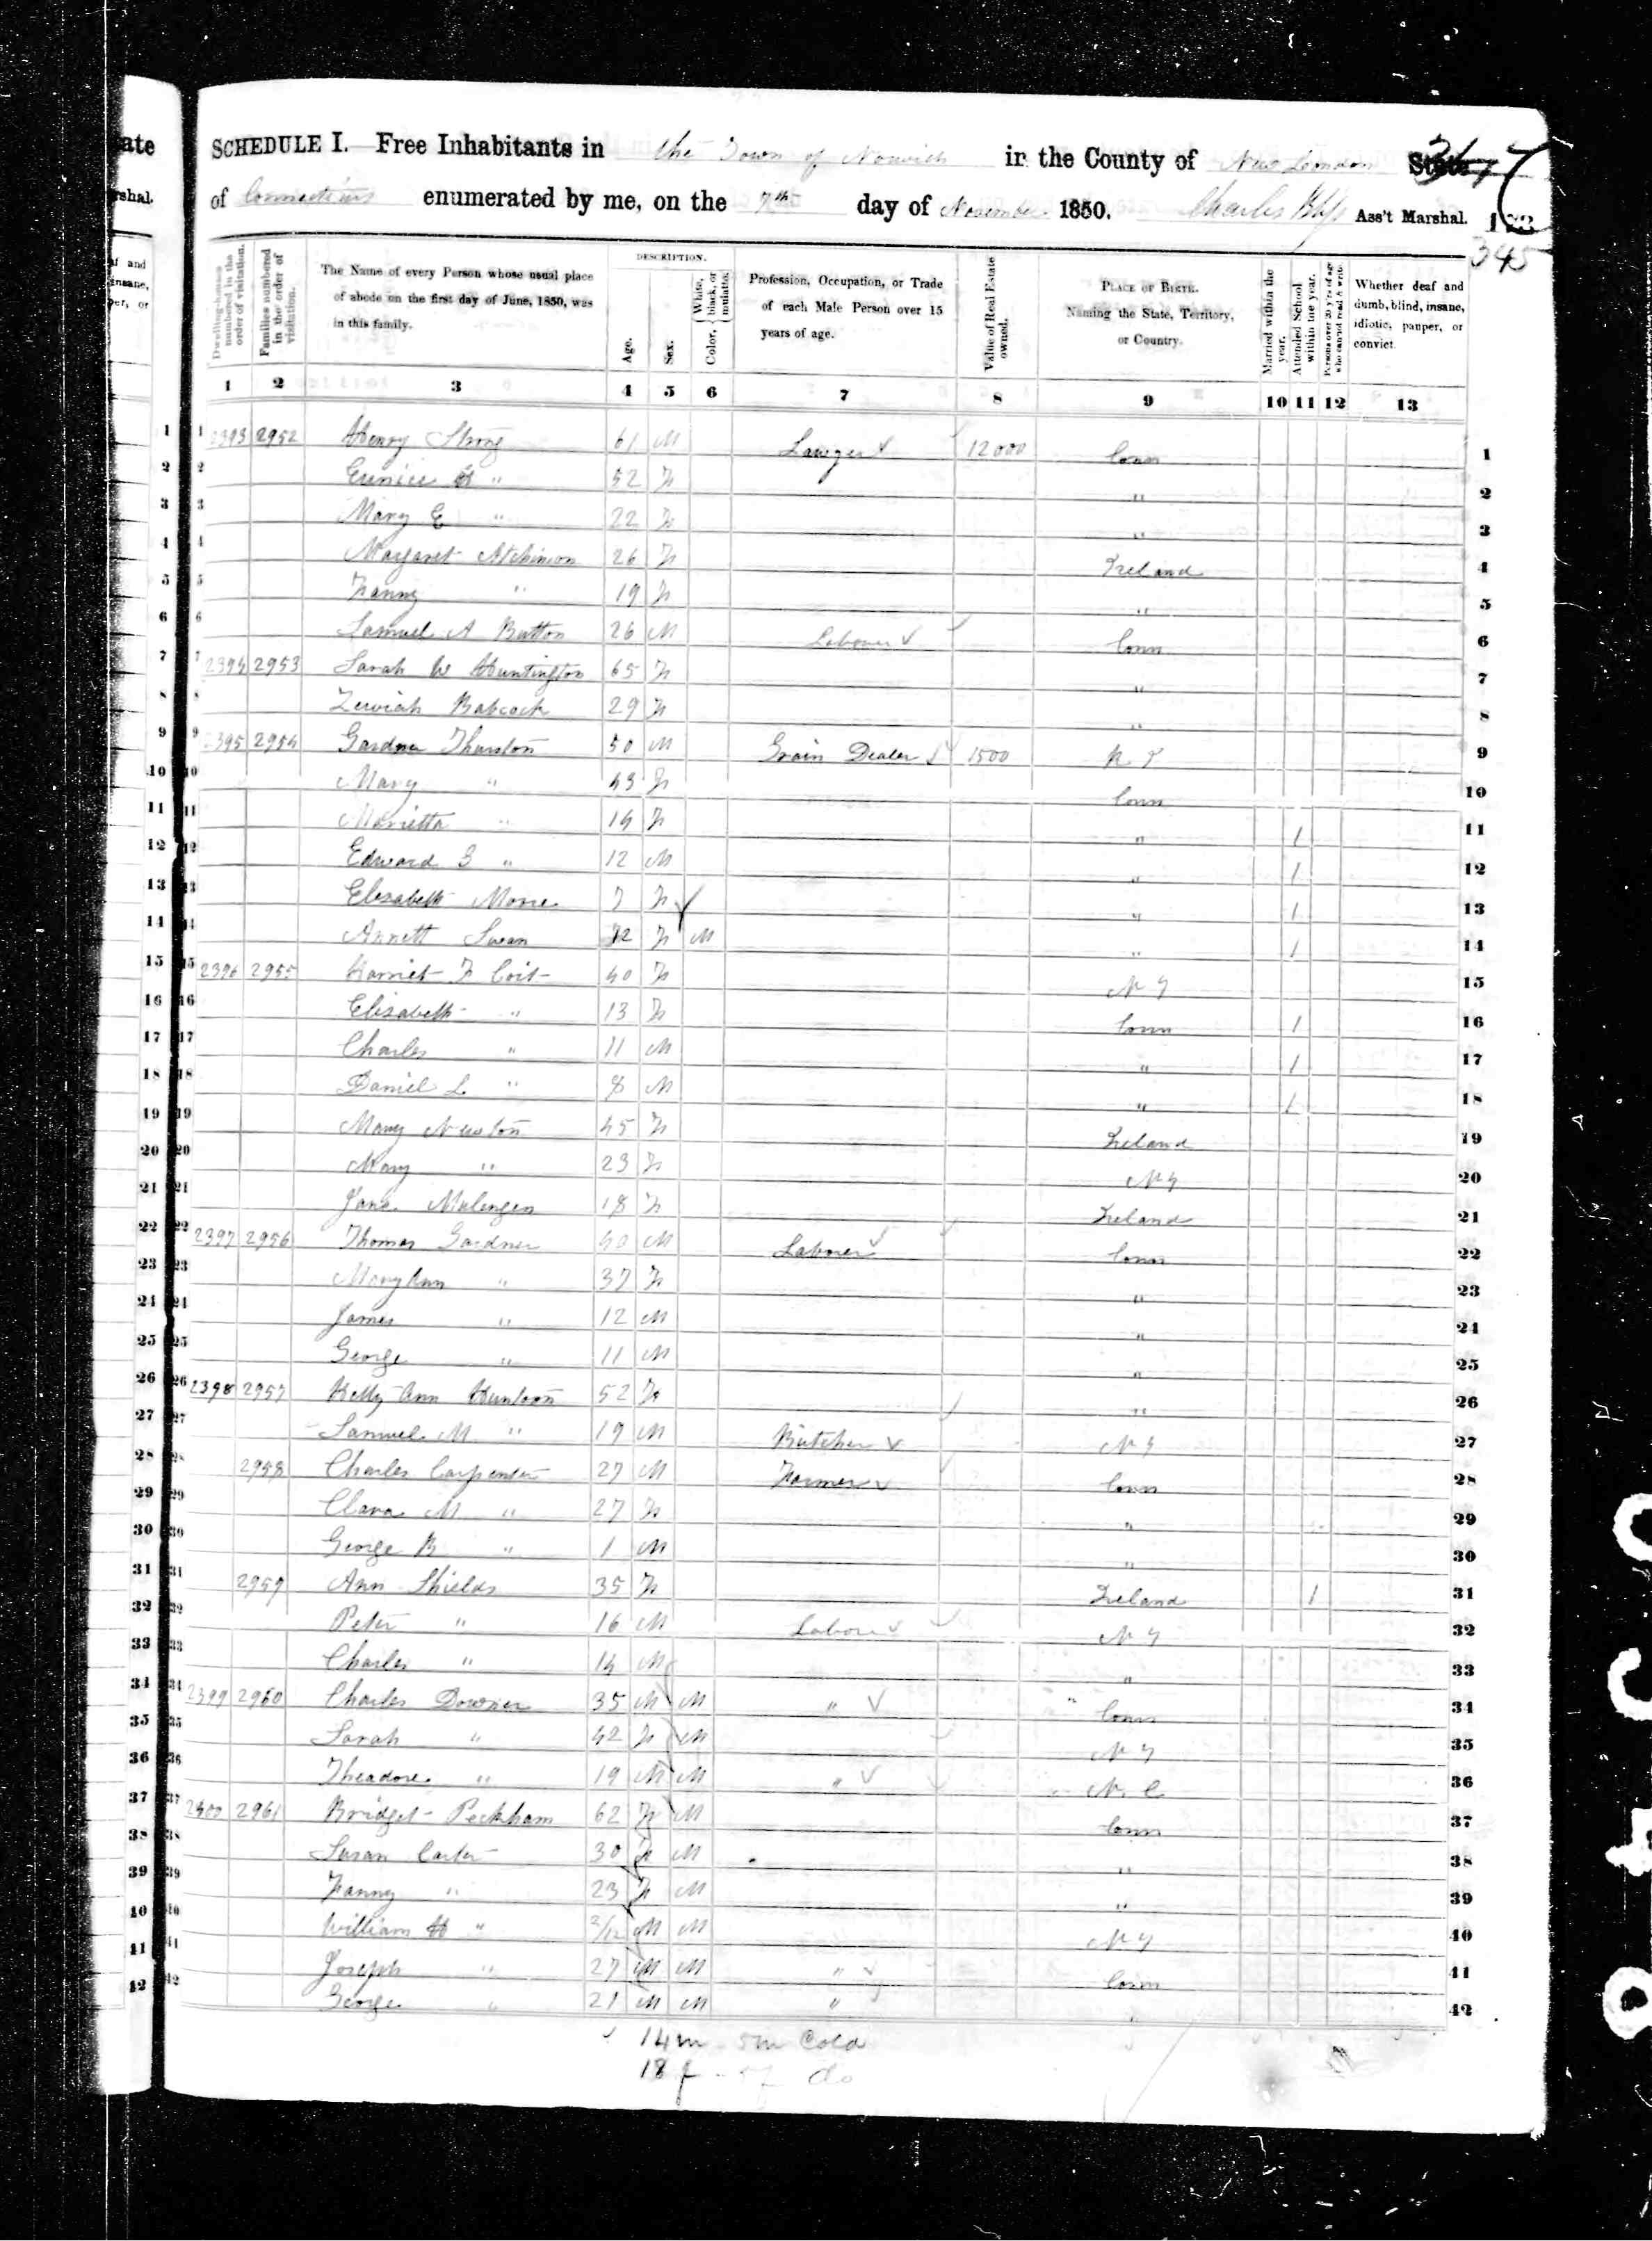 ate
SCHEDULE I. Free Inhabitants in the Town of Norwich in the County of New London State 347
rshal.
of Connecticut enumerated by me, on the 7th day of November 1850. Charles Bliss Ass't Marshal.
345
Dwelling-houses numbered in the order of visitation.
Families numbered in the order of visitation.
The Name of every Person whose usual place of abode on the first day of June, 1850, was in this family.
DESCRIPTION.
Age.
Sex.
Color, { White, black, or mulatto.
Profession, Occupation, or Trade of each Male Person over 15 years of age.
Value of Real Estate owned.
PLACE OF BIRTH. Naming the State, Territory, or Country.
Married within the year.
Attended School within the year.
Persons over 20 y'rs of age who cannot read & write.
Whether deaf and dumb, blind, insane, idiotic, pauper, or convict.
1 2 3 4 5 6 7 8 9 10 11 12 13
1 1 2393 2952 Henry Strong 61 M Lawyer 12000 Conn 1
2 2 Eunice " 52 F " 2
3 3 Mary E " 22 F " 3
4 4 Margaret Atchinson 26 F Ireland 4
5 5 Fanny " 19 F " 5
6 6 Samuel A Button 26 M Laborer Conn 6
7 7 2394 2953 Sarah W Huntington 65 F " 7
8 8 Zerviah Babcock 29 F " 8
9 9 2395 2954 Gardner Thurston 50 M Grain Dealer 1500 R I 9
10 10 Mary " 43 F Conn 10
11 11 Marietta " 14 F " 1 11
12 12 Edward " 12 M " 1 12
13 13 Elizabeth Morse 7 F " 1 13
14 14 Annett Swan 12 F M " 1 14
15 15 2396 2955 Harriet F Coit 40 F N Y 15
16 16 Elizabeth " 13 F Conn 1 16
17 17 Charles " 11 M " 1 17
18 18 Daniel L " 8 M " 1 18
19 19 Mary Newton 45 F Ireland 19
20 20 Mary " 23 F N Y 20
21 21 Jane 18 F Ireland 21
22 22 2397 2956 Thomas Gardner 40 M Laborer Conn 22
23 23 Mary Ann " 37 F " 23
24 24 James " 12 M " 24
25 25 George " 11 M " 25
26 26 2398 2957 Ann 52 F " 26
27 27 Samuel M " 19 M Butcher N Y 27
28 28 2958 Charles Carpenter 27 M Farmer Conn 28
29 29 Clara M " 27 F " 29
30 30 George B " 1 M " 30
31 31 2959 Ann Shields 35 F Ireland 1 31
32 32 Peter " 16 M Laborer N Y 32
33 33 Charles " 14 M " 33
34 34 2399 2960 Charles Downer 35 M M " Conn 34
35 35 Sarah " 42 F M N Y 35
36 36 Theadore " 19 M M " N C 36
37 37 2400 2961 Bridget Peckham 62 F M Conn 37
38 38 Susan Carter 30 F M " 38
39 39 Fanny " 23 F M " 39
40 40 William H " 2/12 M M N Y 40
41 41 Joseph " 27 M M " Conn 41
42 42 George " 21 M M " " 42
14 m 5m Cold
18 f 5f do